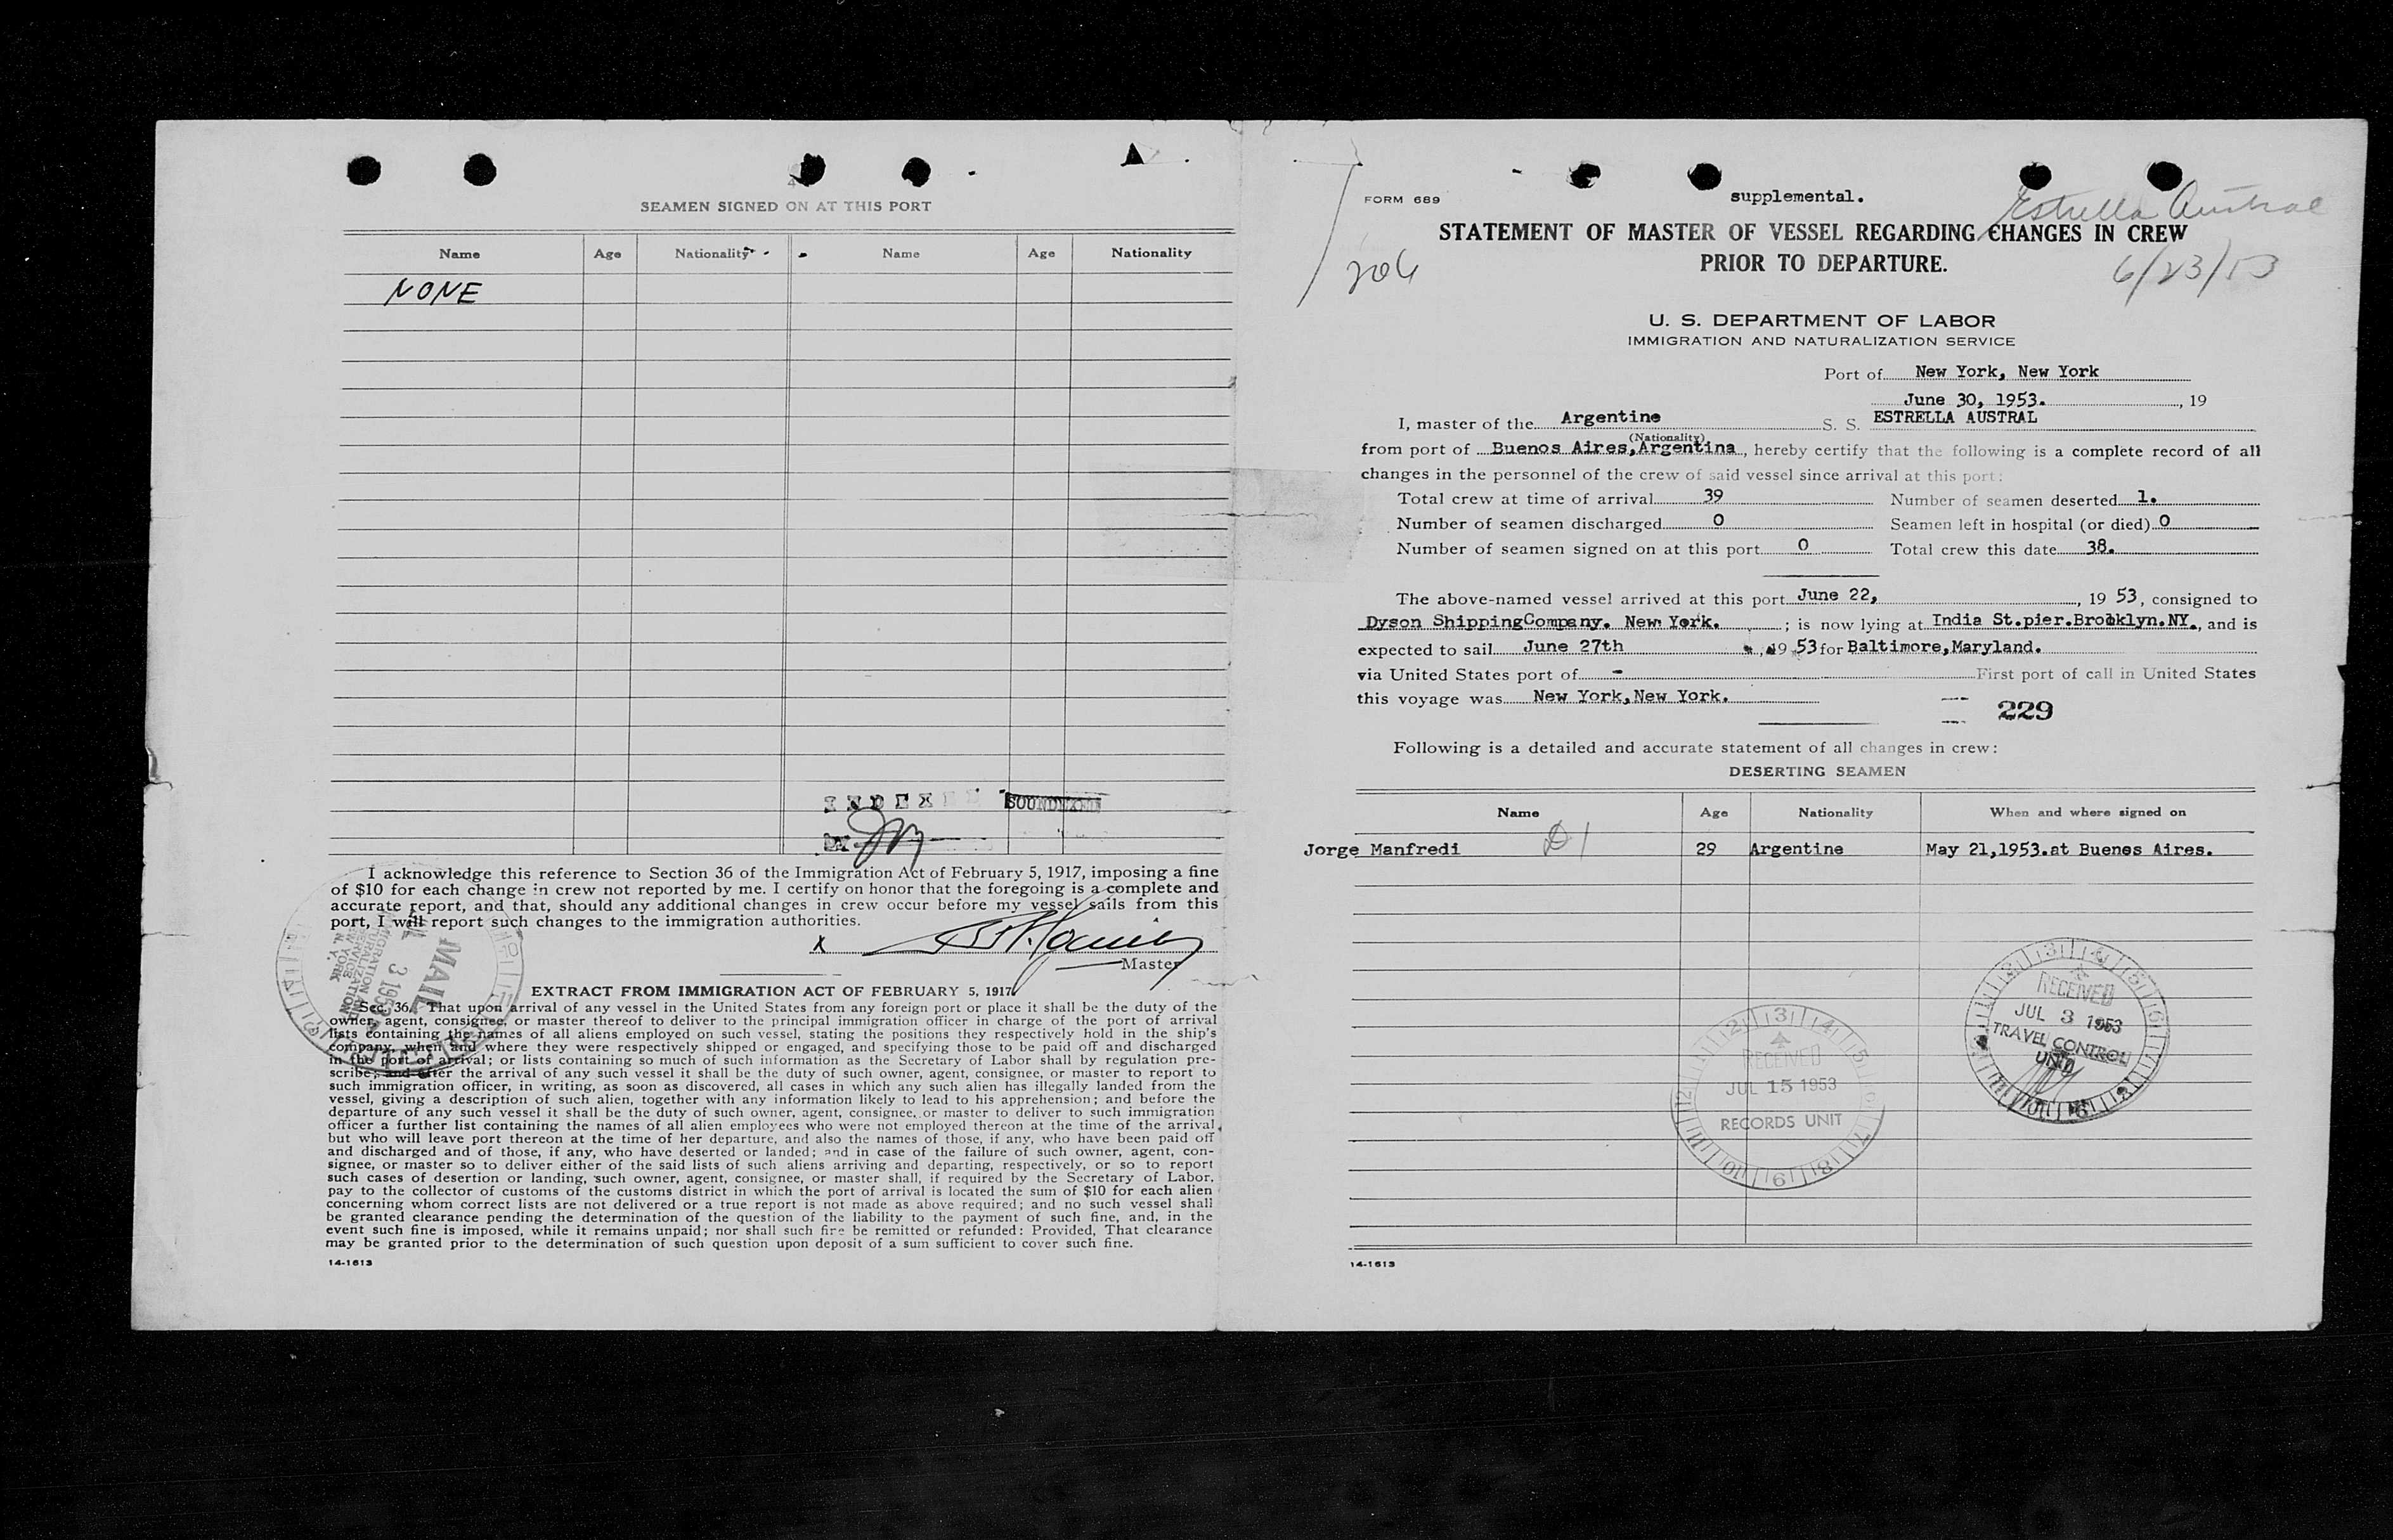 SEAMEN SIGNED ON AT THIS PORT
Name Age Nationality Name Age Nationality
NONE
INDEXED SOUNDEXED
I acknowledge this reference to Section 36 of the Immigration Act of February 5, 1917, imposing a fine
of $10 for each change in crew not reported by me. I certify on honor that the foregoing is a complete and
accurate report, and that, should any additional changes in crew occur before my vessel sails from this
port, I will report such changes to the immigration authorities.
X
Master
MAIL
3 1953
EXTRACT FROM IMMIGRATION ACT OF FEBRUARY 5, 1917
Sec. 36. That upon arrival of any vessel in the United States from any foreign port or place it shall be the duty of the
owner, agent, consignee, or master thereof to deliver to the principal immigration officer in charge of the port of arrival
lists containing the names of all aliens employed on such vessel, stating the positions they respectively hold in the ship's
company, when and where they were respectively shipped or engaged, and specifying those to be paid off and discharged
in the port of arrival; or lists containing so much of such information as the Secretary of Labor shall by regulation pre-
scribe; and after the arrival of any such vessel it shall be the duty of such owner, agent, consignee, or master to report to
such immigration officer, in writing, as soon as discovered, all cases in which any such alien has illegally landed from the
vessel, giving a description of such alien, together with any information likely to lead to his apprehension; and before the
departure of any such vessel it shall be the duty of such owner, agent, consignee, or master to deliver to such immigration
officer a further list containing the names of all alien employees who were not employed thereon at the time of the arrival,
but who will leave port thereon at the time of her departure, and also the names of those, if any, who have been paid off
and discharged and of those, if any, who have deserted or landed; and in case of the failure of such owner, agent, con-
signee, or master so to deliver either of the said lists of such aliens arriving and departing, respectively, or so to report
such cases of desertion or landing, such owner, agent, consignee, or master shall, if required by the Secretary of Labor,
pay to the collector of customs of the customs district in which the port of arrival is located the sum of $10 for each alien
concerning whom correct lists are not delivered or a true report is not made as above required; and no such vessel shall
be granted clearance pending the determination of the question of the liability to the payment of such fine, and, in the
event such fine is imposed, while it remains unpaid; nor shall such fine be remitted or refunded: Provided, That clearance
may be granted prior to the determination of such question upon deposit of a sum sufficient to cover such fine.
14-1613
FORM 689
supplemental.
Estrella Austral
STATEMENT OF MASTER OF VESSEL REGARDING CHANGES IN CREW
PRIOR TO DEPARTURE.
206
6/23/53
U. S. DEPARTMENT OF LABOR
IMMIGRATION AND NATURALIZATION SERVICE
Port of New York, New York
June 30, 1953. , 19
I, master of the Argentine S. S. ESTRELLA AUSTRAL
(Nationality)
from port of Buenos Aires,Argentina, hereby certify that the following is a complete record of all
changes in the personnel of the crew of said vessel since arrival at this port:
Total crew at time of arrival 39 Number of seamen deserted 1.
Number of seamen discharged 0 Seamen left in hospital (or died) 0
Number of seamen signed on at this port 0 Total crew this date 38.
The above-named vessel arrived at this port June 22, , 19 53, consigned to
Dyson ShippingCompany. New York. ; is now lying at India St.pier.Brooklyn.NY., and is
expected to sail June 27th , 19 53 for Baltimore,Maryland.
via United States port of - First port of call in United States
this voyage was New York,New York.
229
Following is a detailed and accurate statement of all changes in crew:
DESERTING SEAMEN
Name Age Nationality When and where signed on
Jorge Manfredi 29 Argentine May 21,1953.at Buenes Aires.
RECEIVED
JUL 3 1953
TRAVEL CONTROL
UNIT
RECEIVED
JUL 15 1953
RECORDS UNIT
14-1613